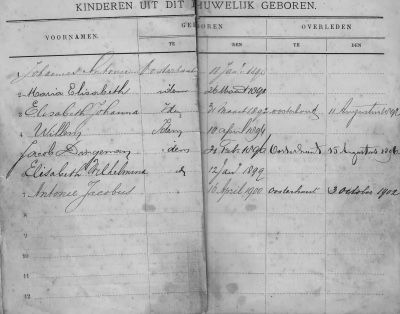 KINDEREN UIT DIT HUWELIJK GEBOREN.
VOORNAMEN. GEBOREN OVERLEDEN
TE DEN TE DEN
1 Johannes Antonius Oosterhout 11 Jan 1890
2 Maria Elisabeth idem 26 Maart 1891
3 Elisabeth Johanna Idem 31 Maart 1892 oosterhout 11 Augustus 1892
4 Willem Idem 10 april 1894
Jacob Dingeman idem Feb. 1896 Oosterhout 15 Augustus 1896
Elisabeth Wilhelmina id 12 Jan 1899
7 Antonie Jacobus 16 April 1900 oosterhout 3 october 1902
8
9
10
11
12